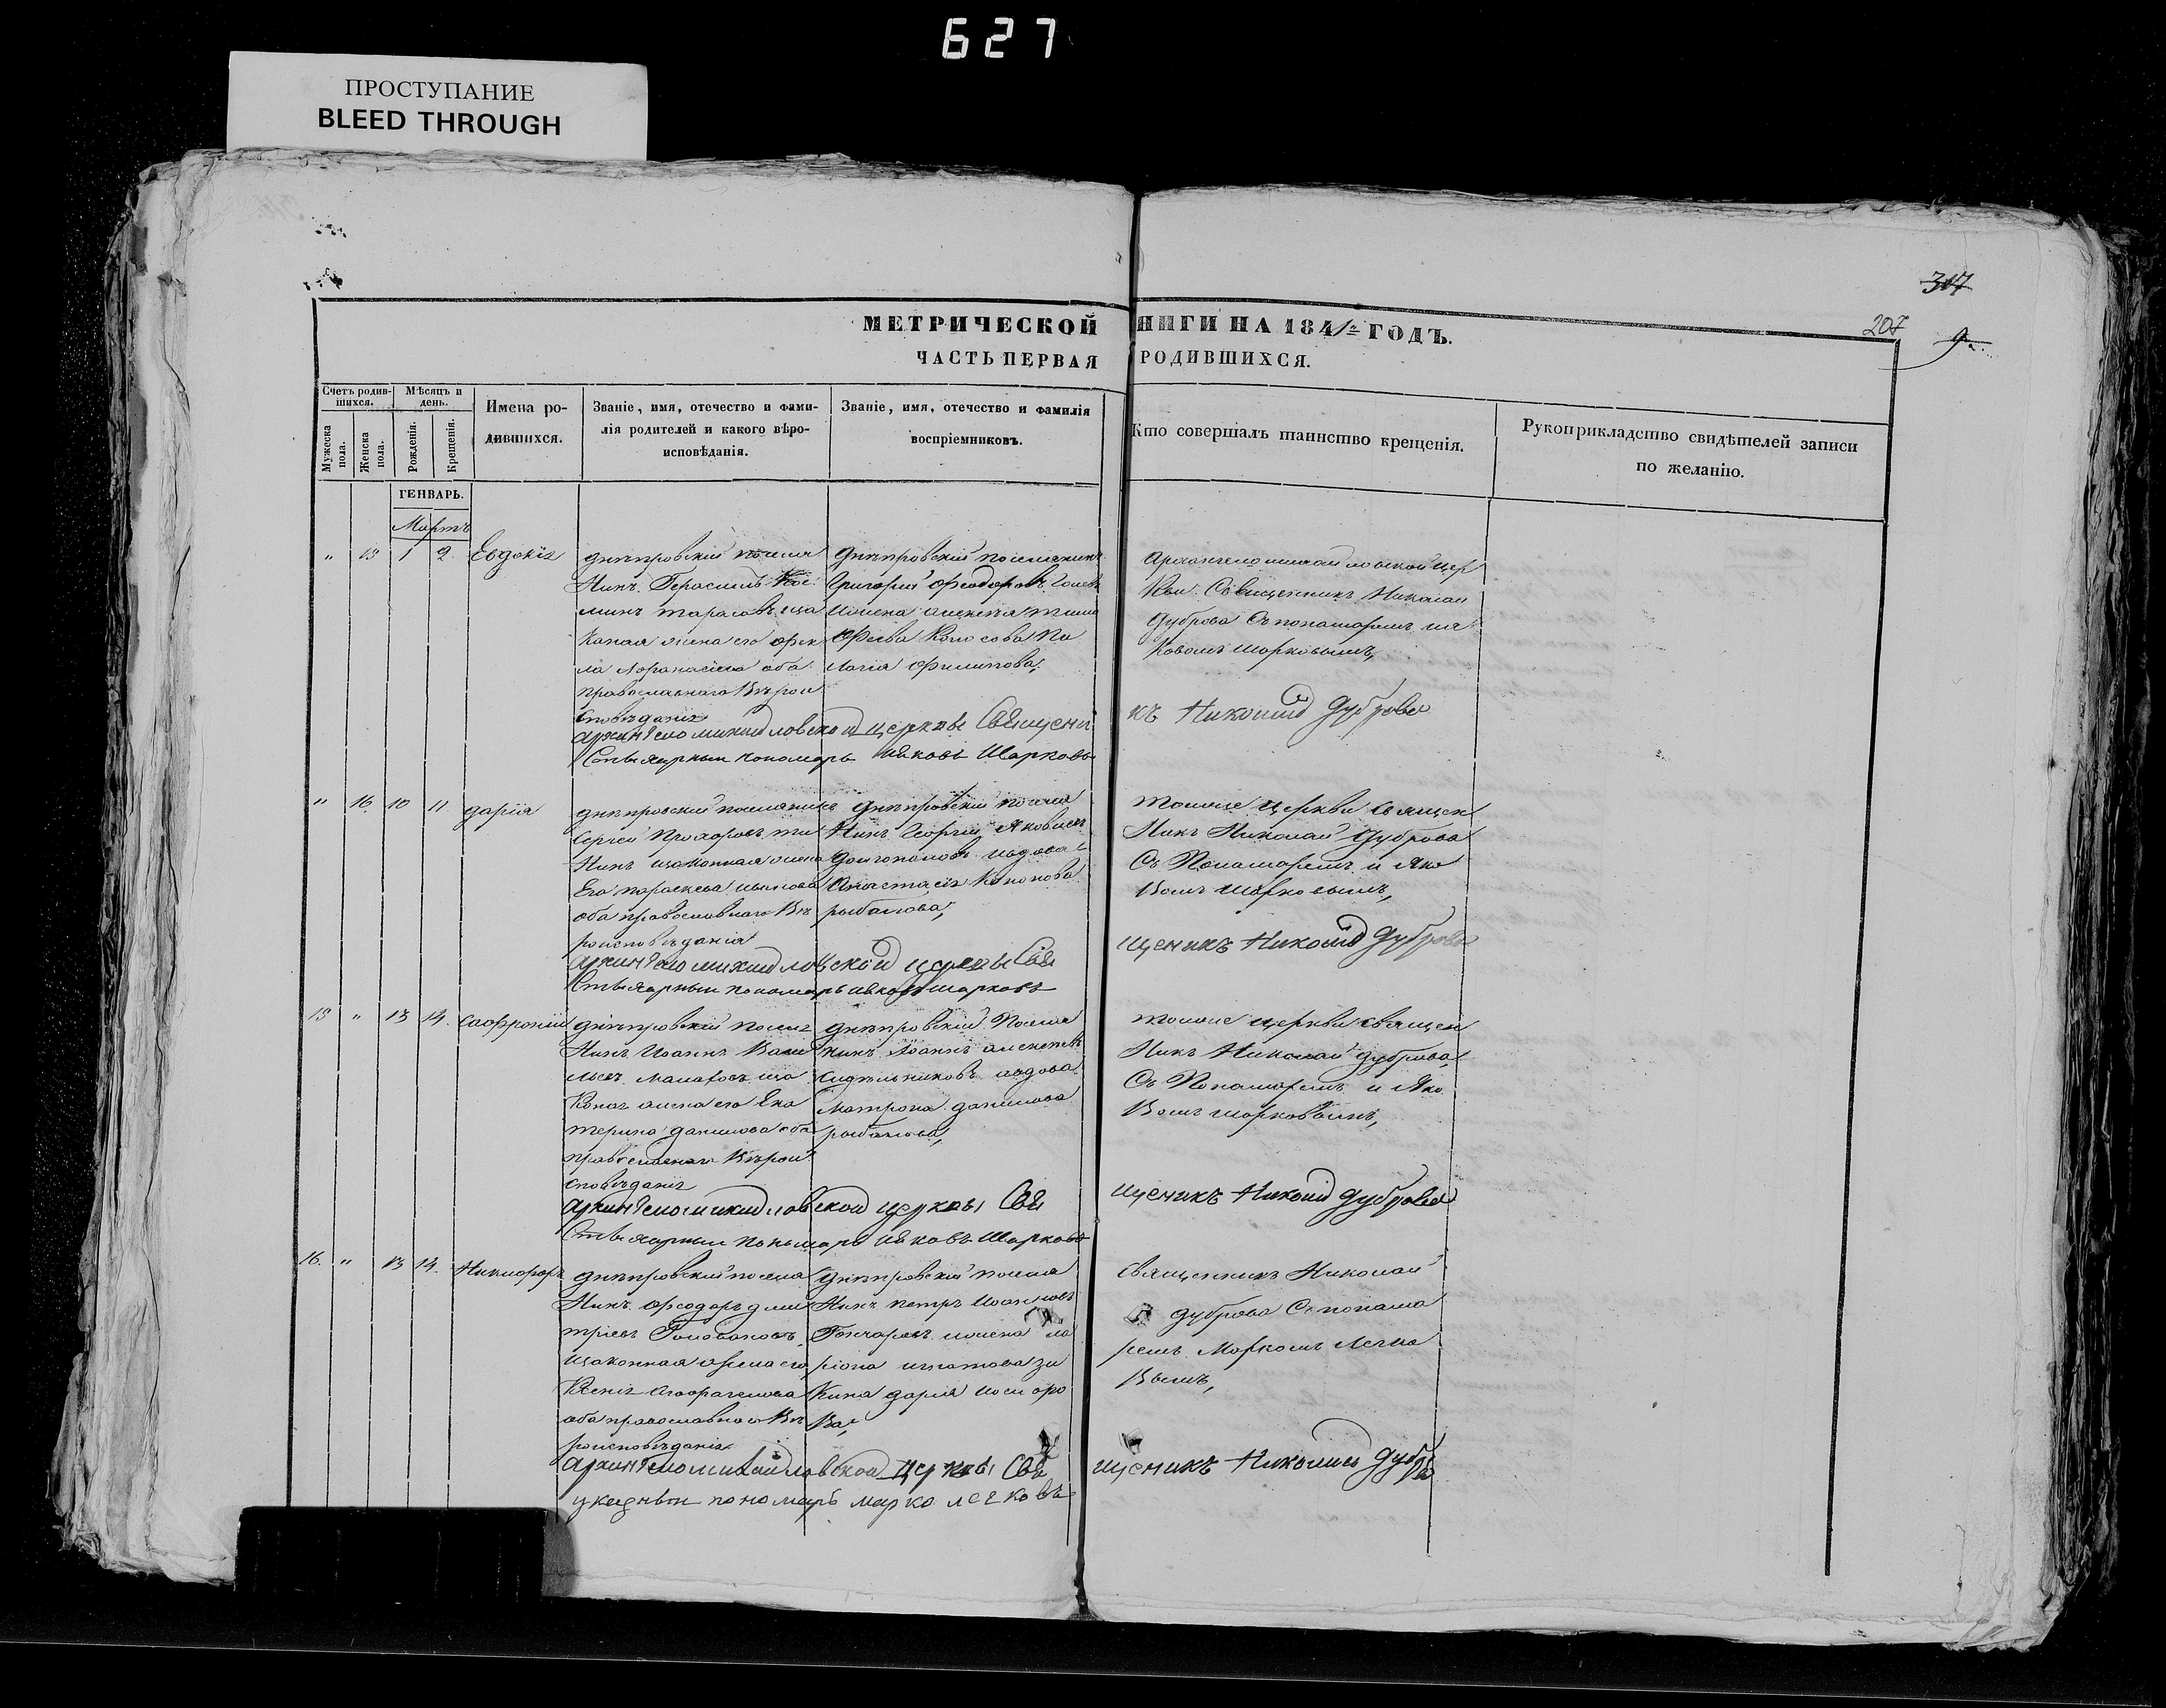 627
ПРОСТУПАНИЕ
BLEED THROUGH
317
207
9
МЕТРИЧЕСКОЙ НИГИ НА 1841й ГОДЪ.
ЧАСТЬ ПЕРВАЯ РОДИВШИХСЯ.
Счетъ родив-
шихся.
Мѣсяцъ и
день.
Мужеска
пола.
Женска
пола.
Рожденія.
Крещенія.
Имена ро-
дившихся.
Званіе, имя, отечество и фами-
лія родителей и какого вѣро-
исповѣданія.
Званіе, имя, отечество и фамилія
воспріемниковъ.
Кто совершалъ таинство крещенія.
Рукоприкладство свидѣтелей записи
по желанію.
ГЕНВАРЬ.
Мартъ
" 15 1 2 Евдокія
днѣпровскій поселя
нинъ Герасимъ
минъ тарасовъ иза
конная жена его Фек
ла Афанасіева оба
православнаго вѣрои
сповѣданія
днѣпровскій поселянинъ
Григорій Феодоровъ
Филипова,
Архангеломихайловской цер
кви Священникъ Николай
Дуброва Съ понамаремъ ия
ковомъ Шарковымъ,
Архангеломихайловской церквы Священи
къ Николай Дуброва
Стихарный пономарь Ияковъ Шарковъ
" 16 10 11 дарія
днѣпровскій поселянинъ
Сергей Прохоровъ
нинъ изаконная жена
Его параскева иванова
оба православнаго вѣ
роисповѣданія
днѣпровскій поселя
нинъ Георгій Яковлевъ
Анастасія Кононова
рыбалова,
тоиже церкви священ
никъ Николай Дуброва
Съ Понамаремъ и Яко
вомъ Шарковымъ,
Архангеломихайловской церквы Свя
щеникъ Николай Дуброва
Стихарный пономарь ияковъ шарковъ
15 " 13 14 Саофроній
днѣпровскій поселя
нинъ Иоаннъ Васи
льевъ иза
конная жена его Ека
терина данилова оба
православнаго вѣрои
сповѣданія
днѣпровскій Поселя
нинъ Иоаннъ алексѣевъ
матрона данилова
рыбалова,
тоиже церкви священ
никъ Николай Дуброва,
Съ Понамаремъ и Яко
вомъ шарковымъ,
Архангеломихайловской церквы Свя
щеникъ Николай Дуброва
Стихарный пономарь Ияковъ Шарковъ
16. " 13 14. Никифоръ
днѣпровскій поселя
нинъ Феодоръ дми
тріевъ Головановъ,
изаконная жена его
Ксенія
оба православнаго вѣ
роисповѣданія
днѣпровскій поселя
нинъ петръ Иоанновъ
Гончаровъ ижена ма
ріона игнатова
дарія
ва,
Священникъ Николай
Дуброва Съ понама
ремъ Маркомъ Легка
вымъ,
Архангеломихайловской церквы Свя
щеникъ Николай Дубро
пономарь марко легковъ